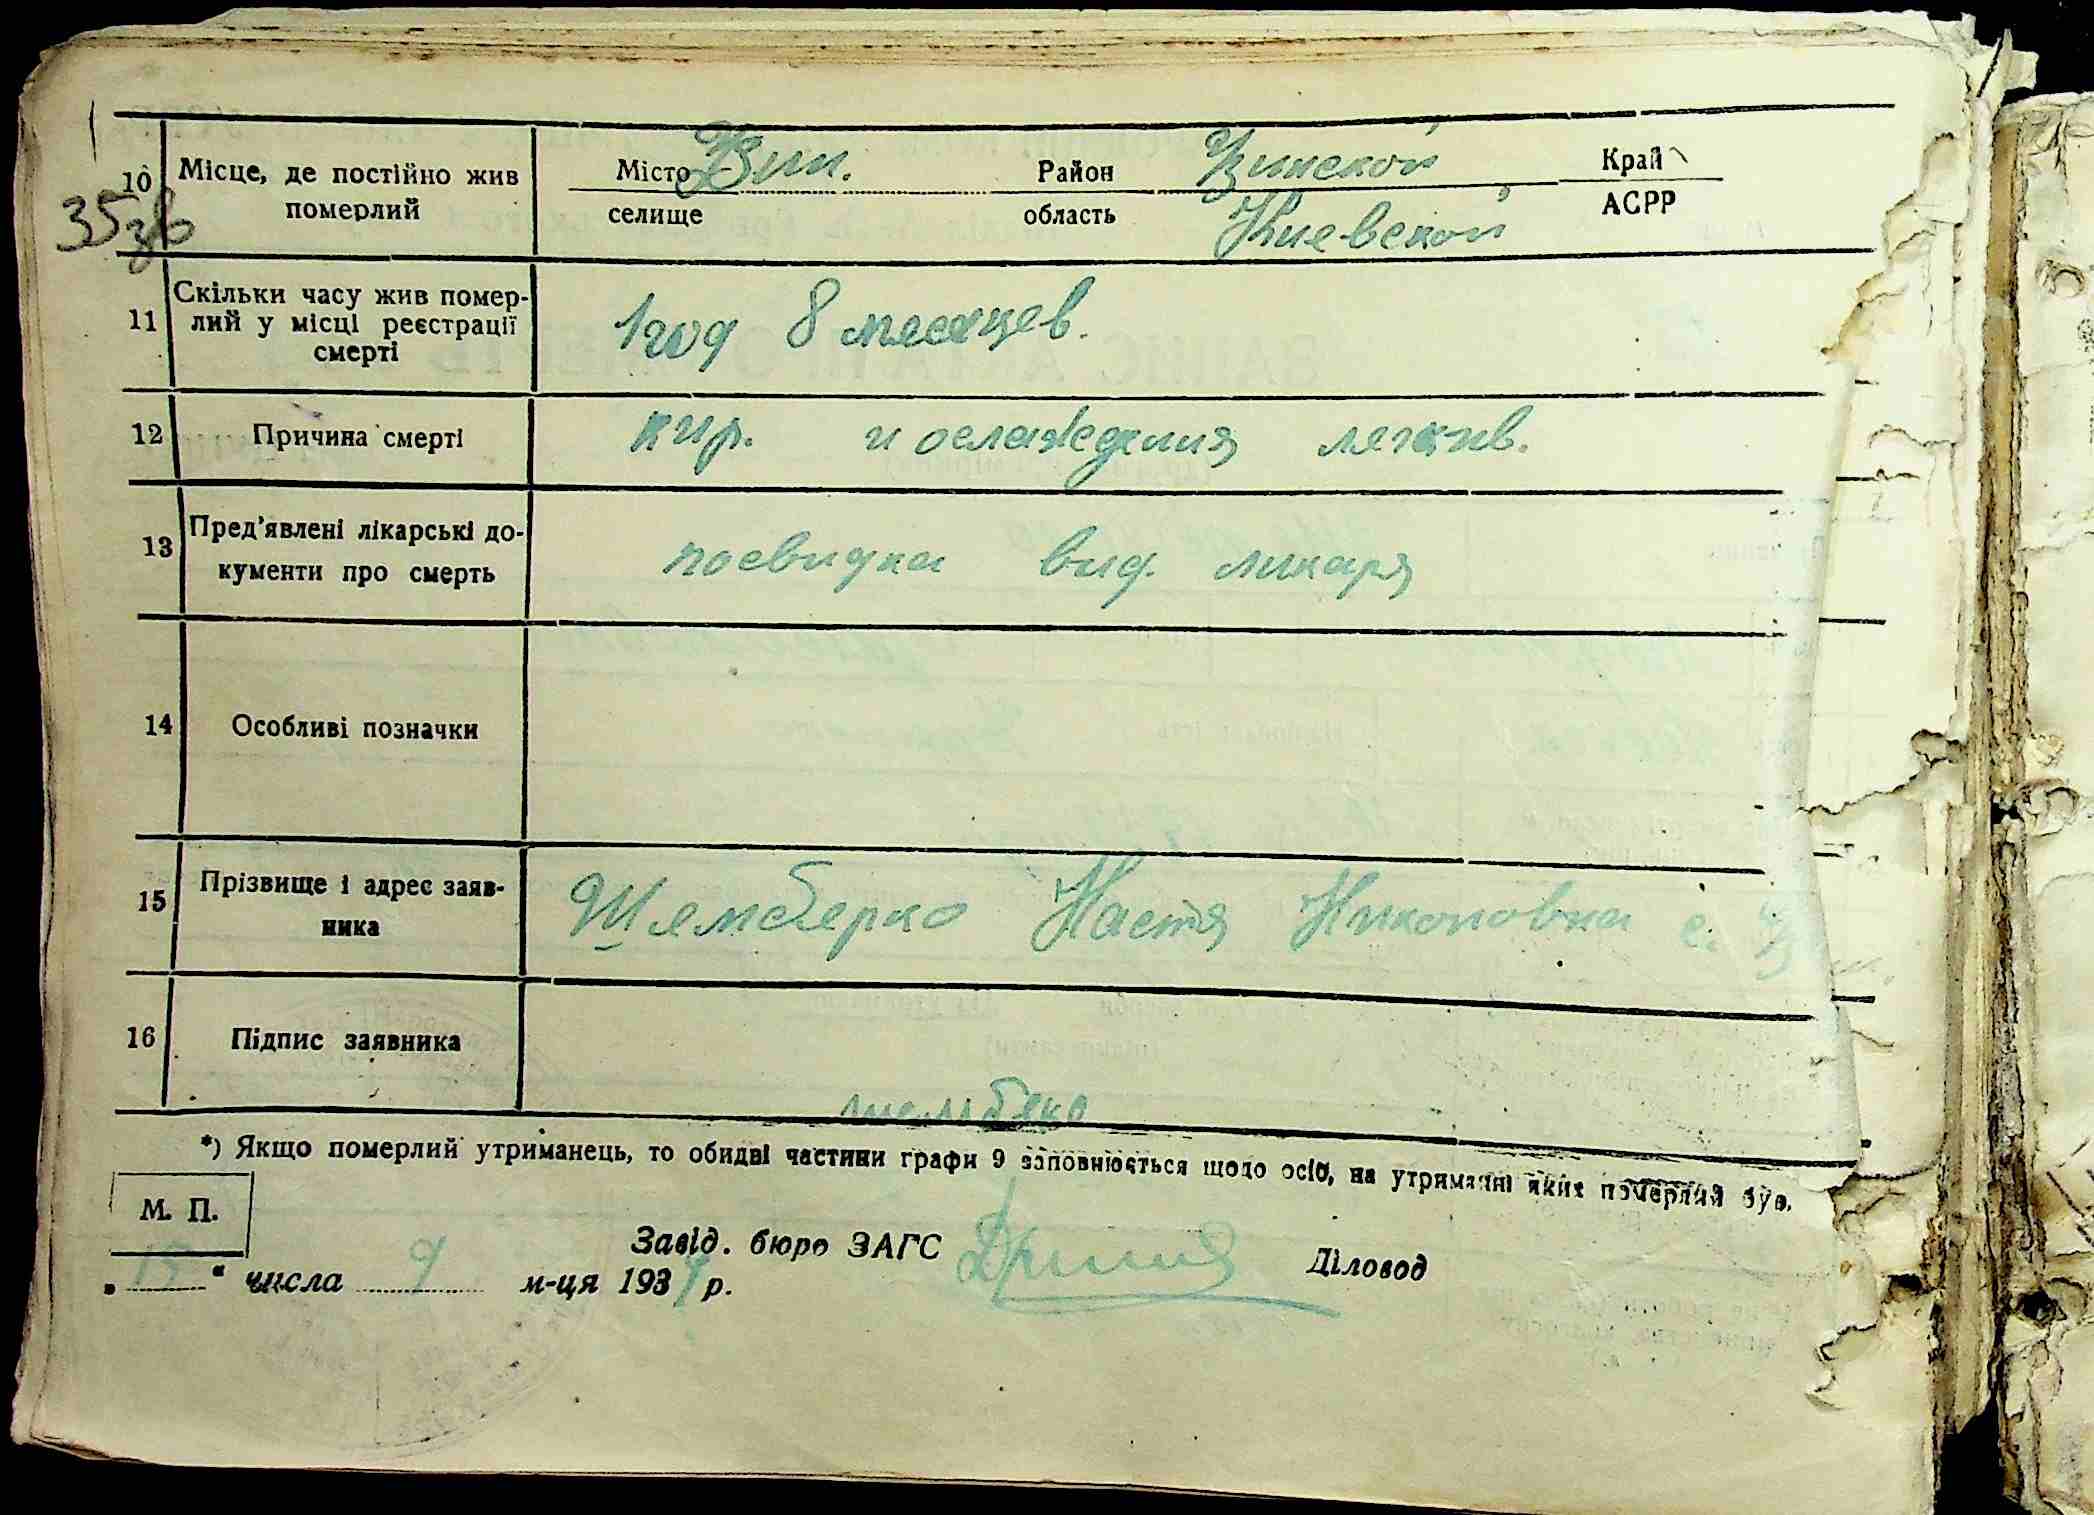 10 Місце, де постійно жив Місто Район Край
35 зв померлий селище область Киевской АСРР
11 Скільки часу жив помер-
лий у місці реєстрації 1 год 8 месяцев.
смерті
12 Причина смерті кир. и ослажедния легкив.
13 Пред'явлені лікарські до- посвидка вид. ликаря
кументи про смерть
14 Особливі позначки
15 Прізвище і адрес заяв- Шемберко Настя Никоновна с.
ника
16 Підпис заявника
*) Якщо померлий утриманець, то обидві частини графи 9 заповнюється щодо осіб, на утриманні яких померлий був.
М. П.
Завід. бюро ЗАГС Діловод
„ “ числа 9 м-ця 1939 р.